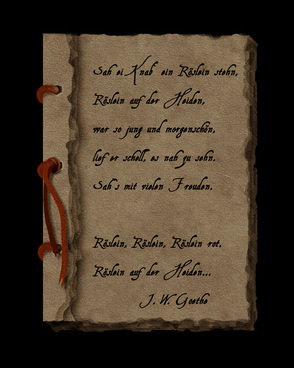 Sah ei Knab' ein Röslein stehn,
Röslein auf der Heiden,
war so jung und morgenschön,
lief er schell, es nah zu sehn.
Sah's mit vielen Freuden.
Röslein, Röslein, Röslein rot,
Röslein auf der Heiden...
J. W. Goethe